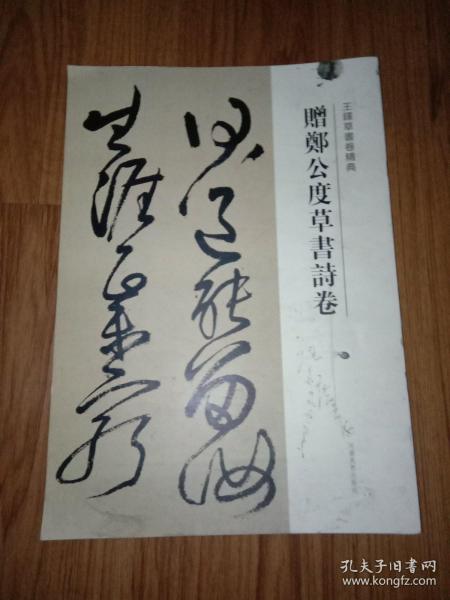 王鐸草書卷精典
贈鄭公度草書詩卷
何道能留汝
生涯
孔夫子旧书网
www.kongfz.com